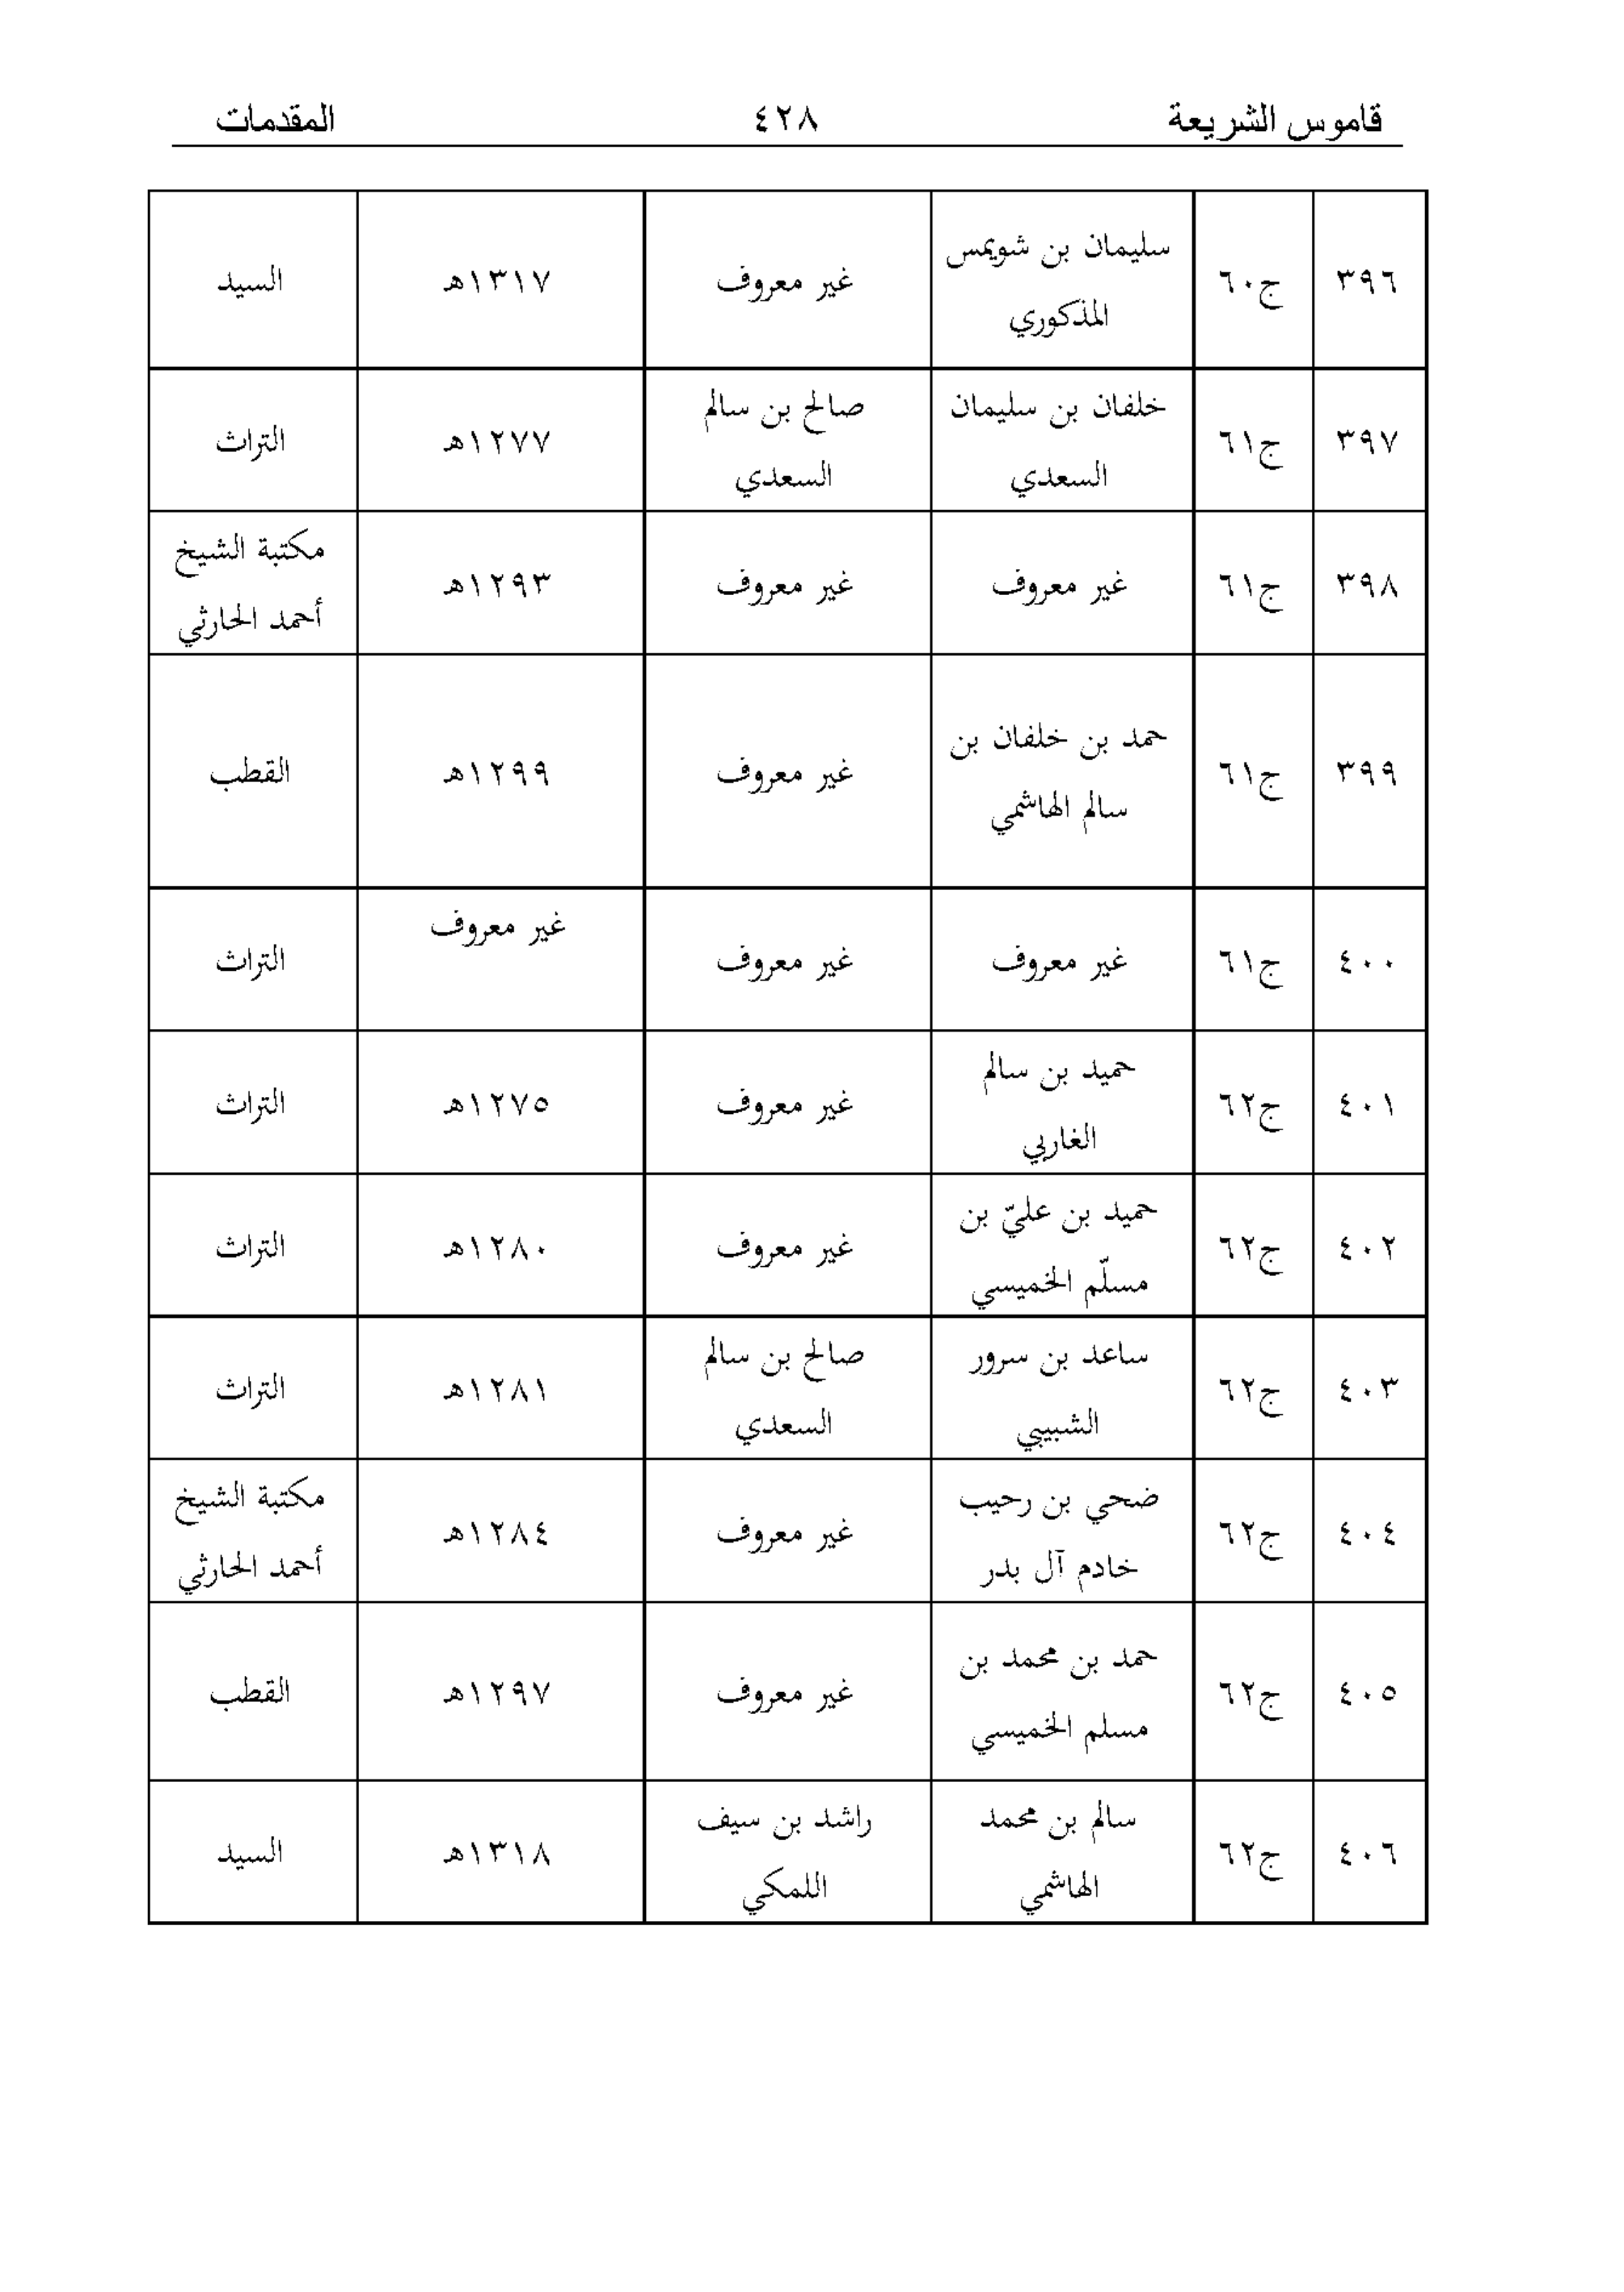 قاموس الشريعة ٤٢٨ المقدمات
٣٩٦ ج٦٠ سليمان بن شويمس المذكوري غير معروف ١٣١٧هـ السيد
٣٩٧ ج٦١ خلفان بن سليمان السعدي صالح بن سالم السعدي ١٢٧٧هـ التراث
٣٩٨ ج٦١ غير معروف غير معروف ١٢٩٣هـ مكتبة الشيخ أحمد الحارثي
٣٩٩ ج٦١ حمد بن خلفان بن سالم الهاشمي غير معروف ١٢٩٩هـ القطب
٤٠٠ ج٦١ غير معروف غير معروف غير معروف التراث
٤٠١ ج٦٢ حميد بن سالم الغاربي غير معروف ١٢٧٥هـ التراث
٤٠٢ ج٦٢ حميد بن عليّ بن مسلّم الخميسي غير معروف ١٢٨٠هـ التراث
٤٠٣ ج٦٢ ساعد بن سرور الشبيبي صالح بن سالم السعدي ١٢٨١هـ التراث
٤٠٤ ج٦٢ ضحي بن رحيب خادم آل بدر غير معروف ١٢٨٤هـ مكتبة الشيخ أحمد الحارثي
٤٠٥ ج٦٢ حمد بن محمد بن مسلم الخميسي غير معروف ١٢٩٧هـ القطب
٤٠٦ ج٦٢ سالم بن محمد الهاشمي راشد بن سيف اللمكي ١٣١٨هـ السيد